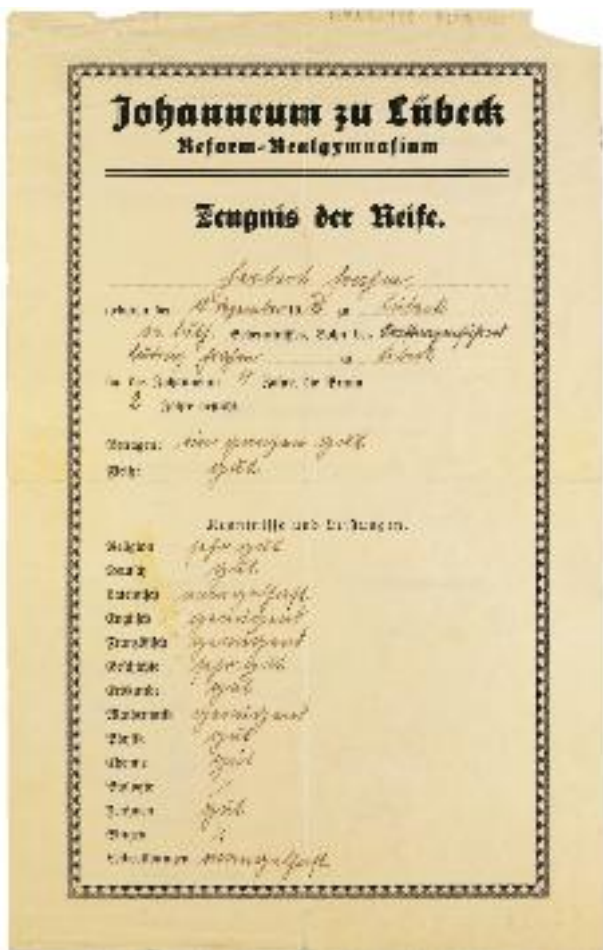 Johanneum zu Lübeck
Reform-Realgymnasium
Zeugnis der Reife.
Herbert
geboren den Dezember 19 zu Lübeck
Bekenntnisses, Sohn des
zu Lübeck
hat das Johanneum Jahre, die Prima
2 Jahre besucht.
Betragen: im ganzen gut
Fleiß: gut
Kenntnisse und Leistungen.
Religion sehr gut
Deutsch gut
Lateinisch mangelhaft
Englisch genügend
Französisch genügend
Geschichte sehr gut
Erdkunde gut
Mathematik genügend
Physik gut
Chemie gut
Biologie /
Zeichnen gut
Singen /
Leibesübungen mangelhaft